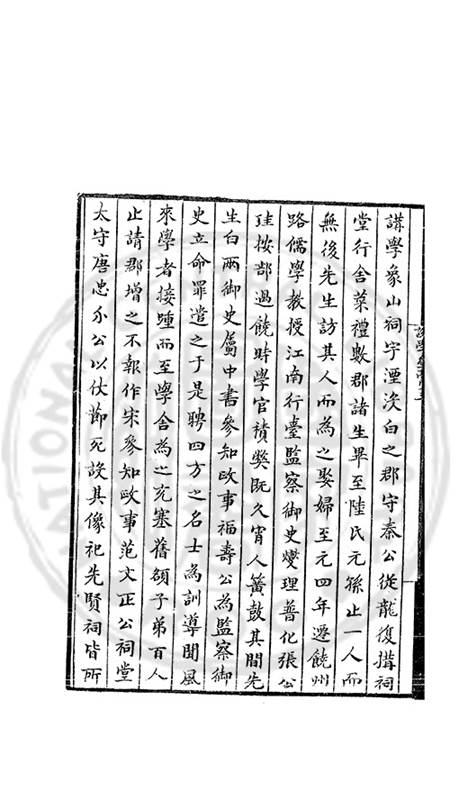 講學象山祠宇湮淡白之郡守秦公從龍復搆祠
堂行舍菜禮數郡諸生畢至陸氏元孫止一人而
無後先生訪其人而為之娶婦至元四年遷饒州
路儒學教授江南行臺監察御史燮理普化張公
珪按部過饒時學官積獘既久宵人簧鼓其間先
生白兩御史屬中書參知政事福壽公為監察御
史立命罪遣之于是聘四方之名士為訓導聞風
來學者接踵而至學舍為之充塞舊額子弟百人
止請郡增之不報作宋參知政事范文正公祠堂
太守唐忠介公以伏節死設其像祀先賢祠皆所